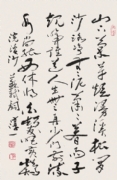 山下蘭芽短浸溪松間
沙路淨無泥蕭蕭暮雨子
規啼誰道人生無再少門前流水
尚能西休將白髮唱黃雞
浣溪沙 蘇軾詞